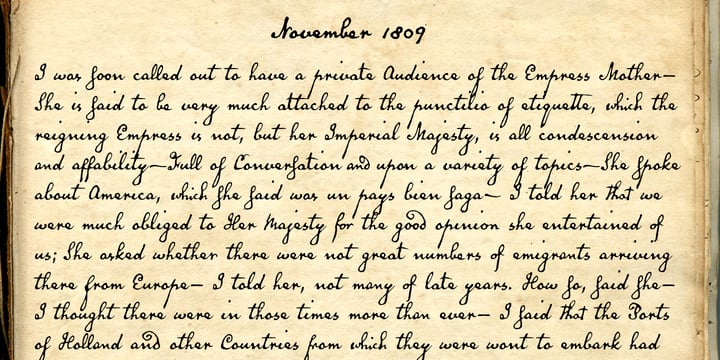 November 1809
I was ſoon called out to have a private Audience of the Empress Mother—
She is ſaid to be very much attached to the punctilio of etiquette, which the
reigning Empress is not, but her Imperial Majesty, is all condescension
and affability—Full of Converſation and upon a variety of topics—She ſpoke
about America, which ſhe ſaid was un pays bien ſaga— I told her that we
were much obliged to Her Majesty for the good opinion she entertained of
us; She asked whether there were not great numbers of emigrants arriving
there from Europe— I told her, not many of late years. How ſo, ſaid ſhe—
I thought there were in those times more than ever— I ſaid that the Ports
of Holland and other Countries from which they were wont to embark had